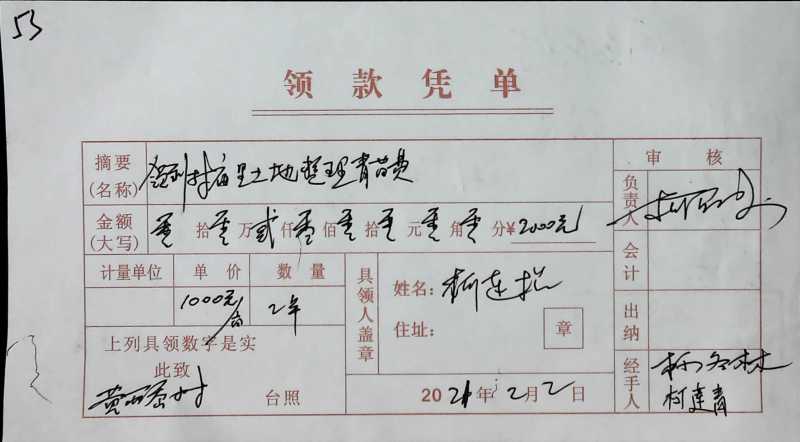 53
领款凭单
摘要(名称) 土地整理青苗费
审核
金额(大写) 零拾零万贰仟零佰零拾零元零角零分¥2000元
负责人
计量单位 单价 数量
1000元/ 2年
具领人盖章
姓名:柯连
住址: 章
会计
出纳
上列具领数字是实
此致
黄 村 台照
2021年2月2日
经手人 柯冬林
柯建青